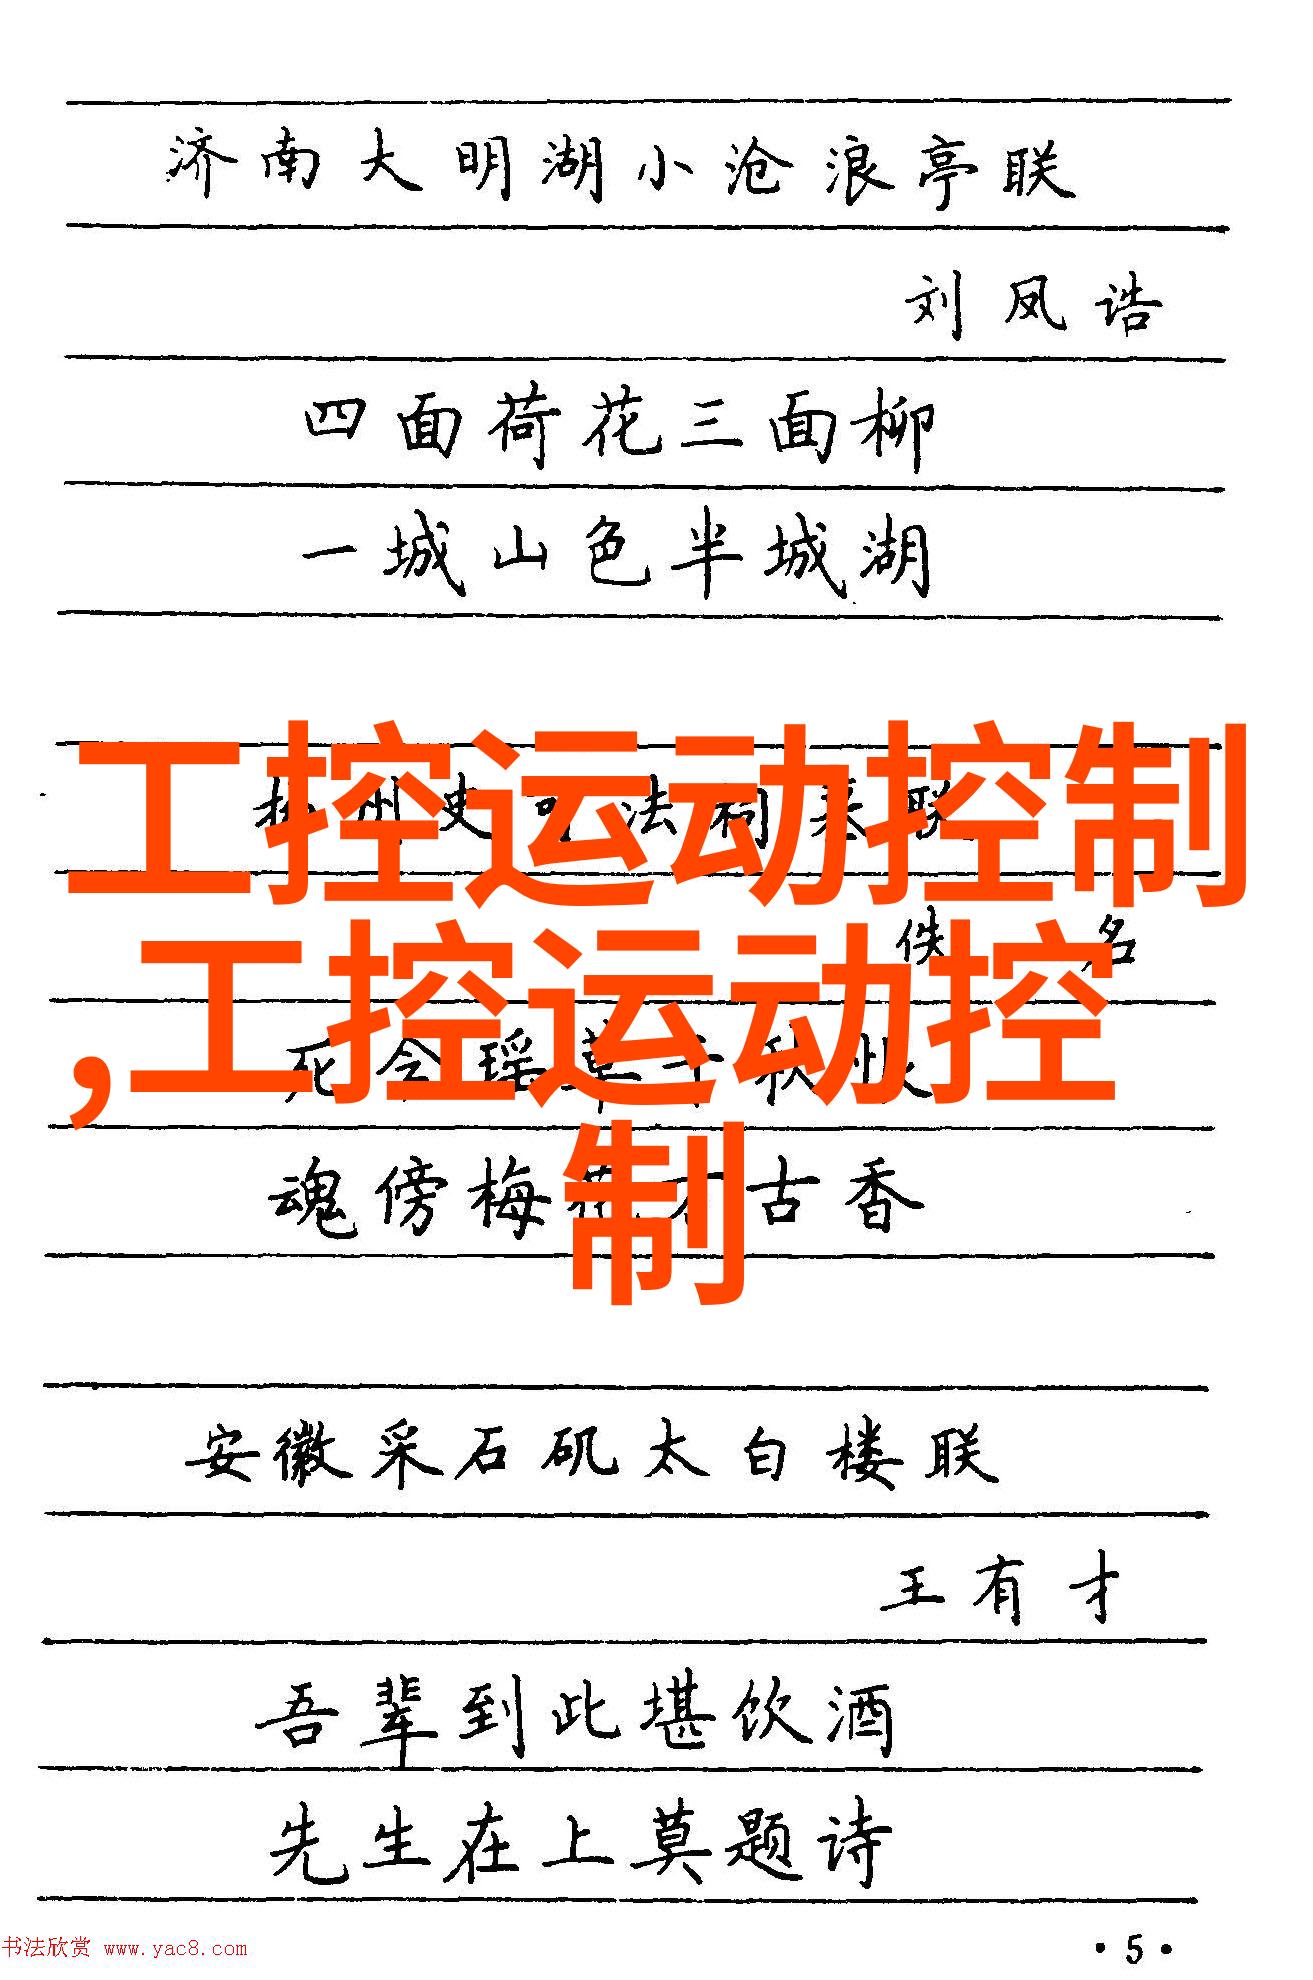 济南大明湖小沧浪亭联
刘凤诰
四面荷花三面柳
一城山色半城湖
工控运动控制
,工控运动控
制
州史可法祠墓联
佚名
死念瑶草千秋恨
魂傍梅花万古香
安徽采石矶太白楼联
王有才
吾辈到此堪饮酒
先生在上莫题诗
书法欣赏 www.yac8.com
·5·